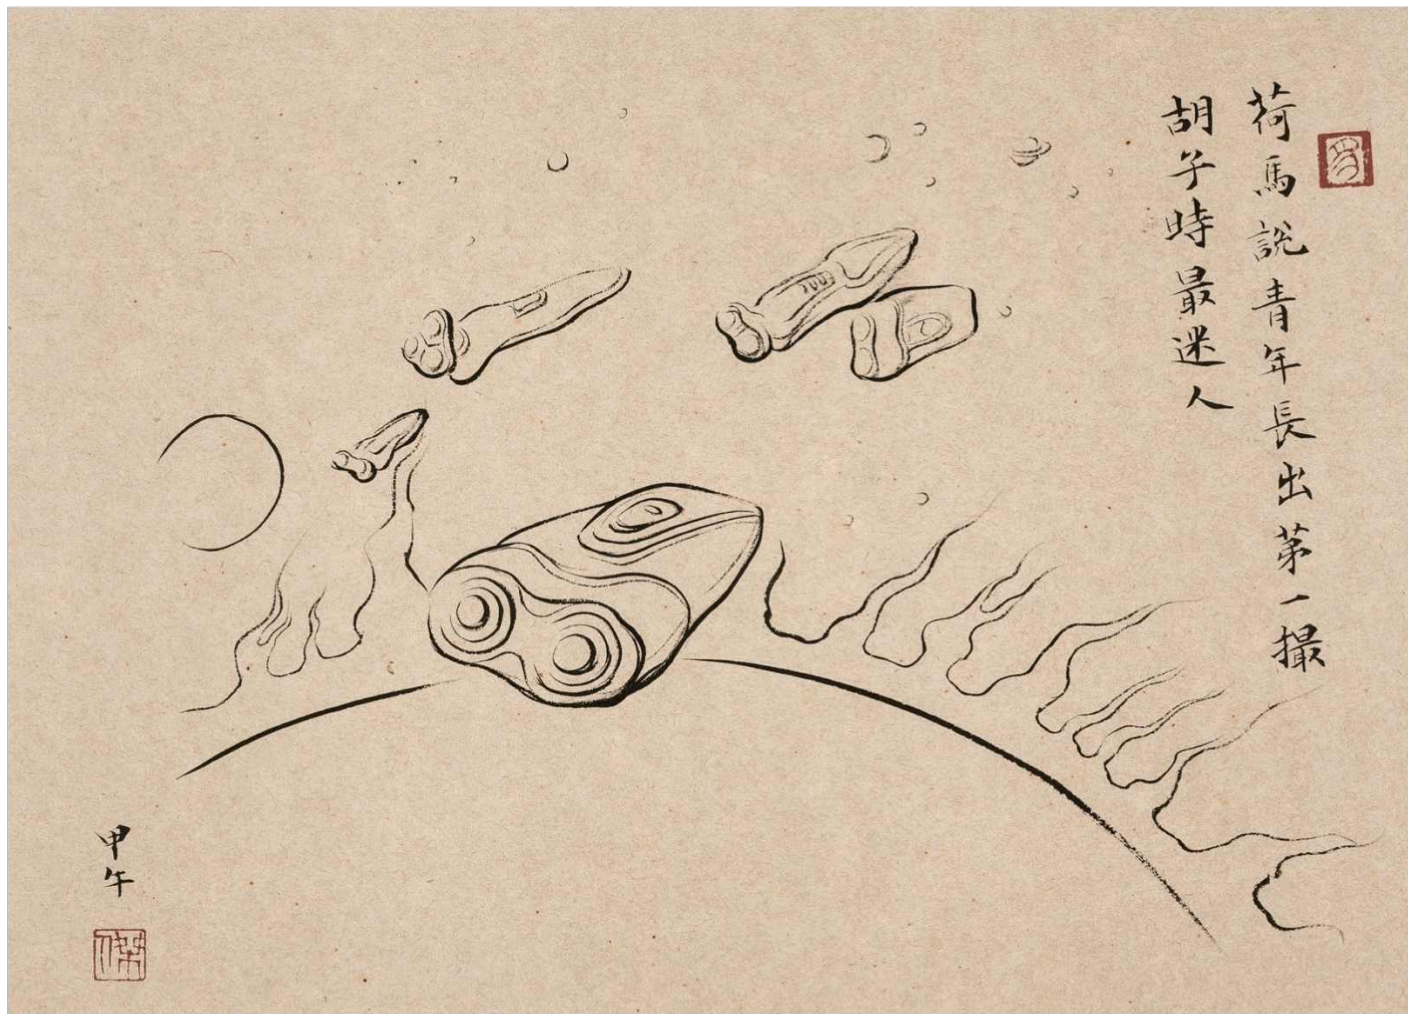 荷馬說青年長出第一撮
胡子時最迷人
甲午